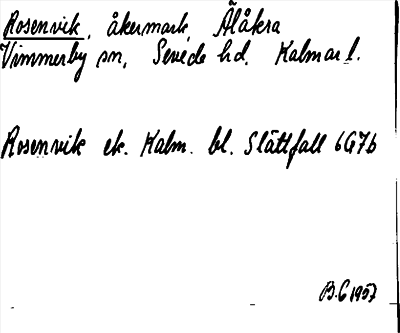 Rosenvik, åkermark, Älåkra
Vimmerby sn, Sevede hd, Kalmar l.
Rosenvik ek. Kalm. bl. Slättfall 6G7b
B.G 1957